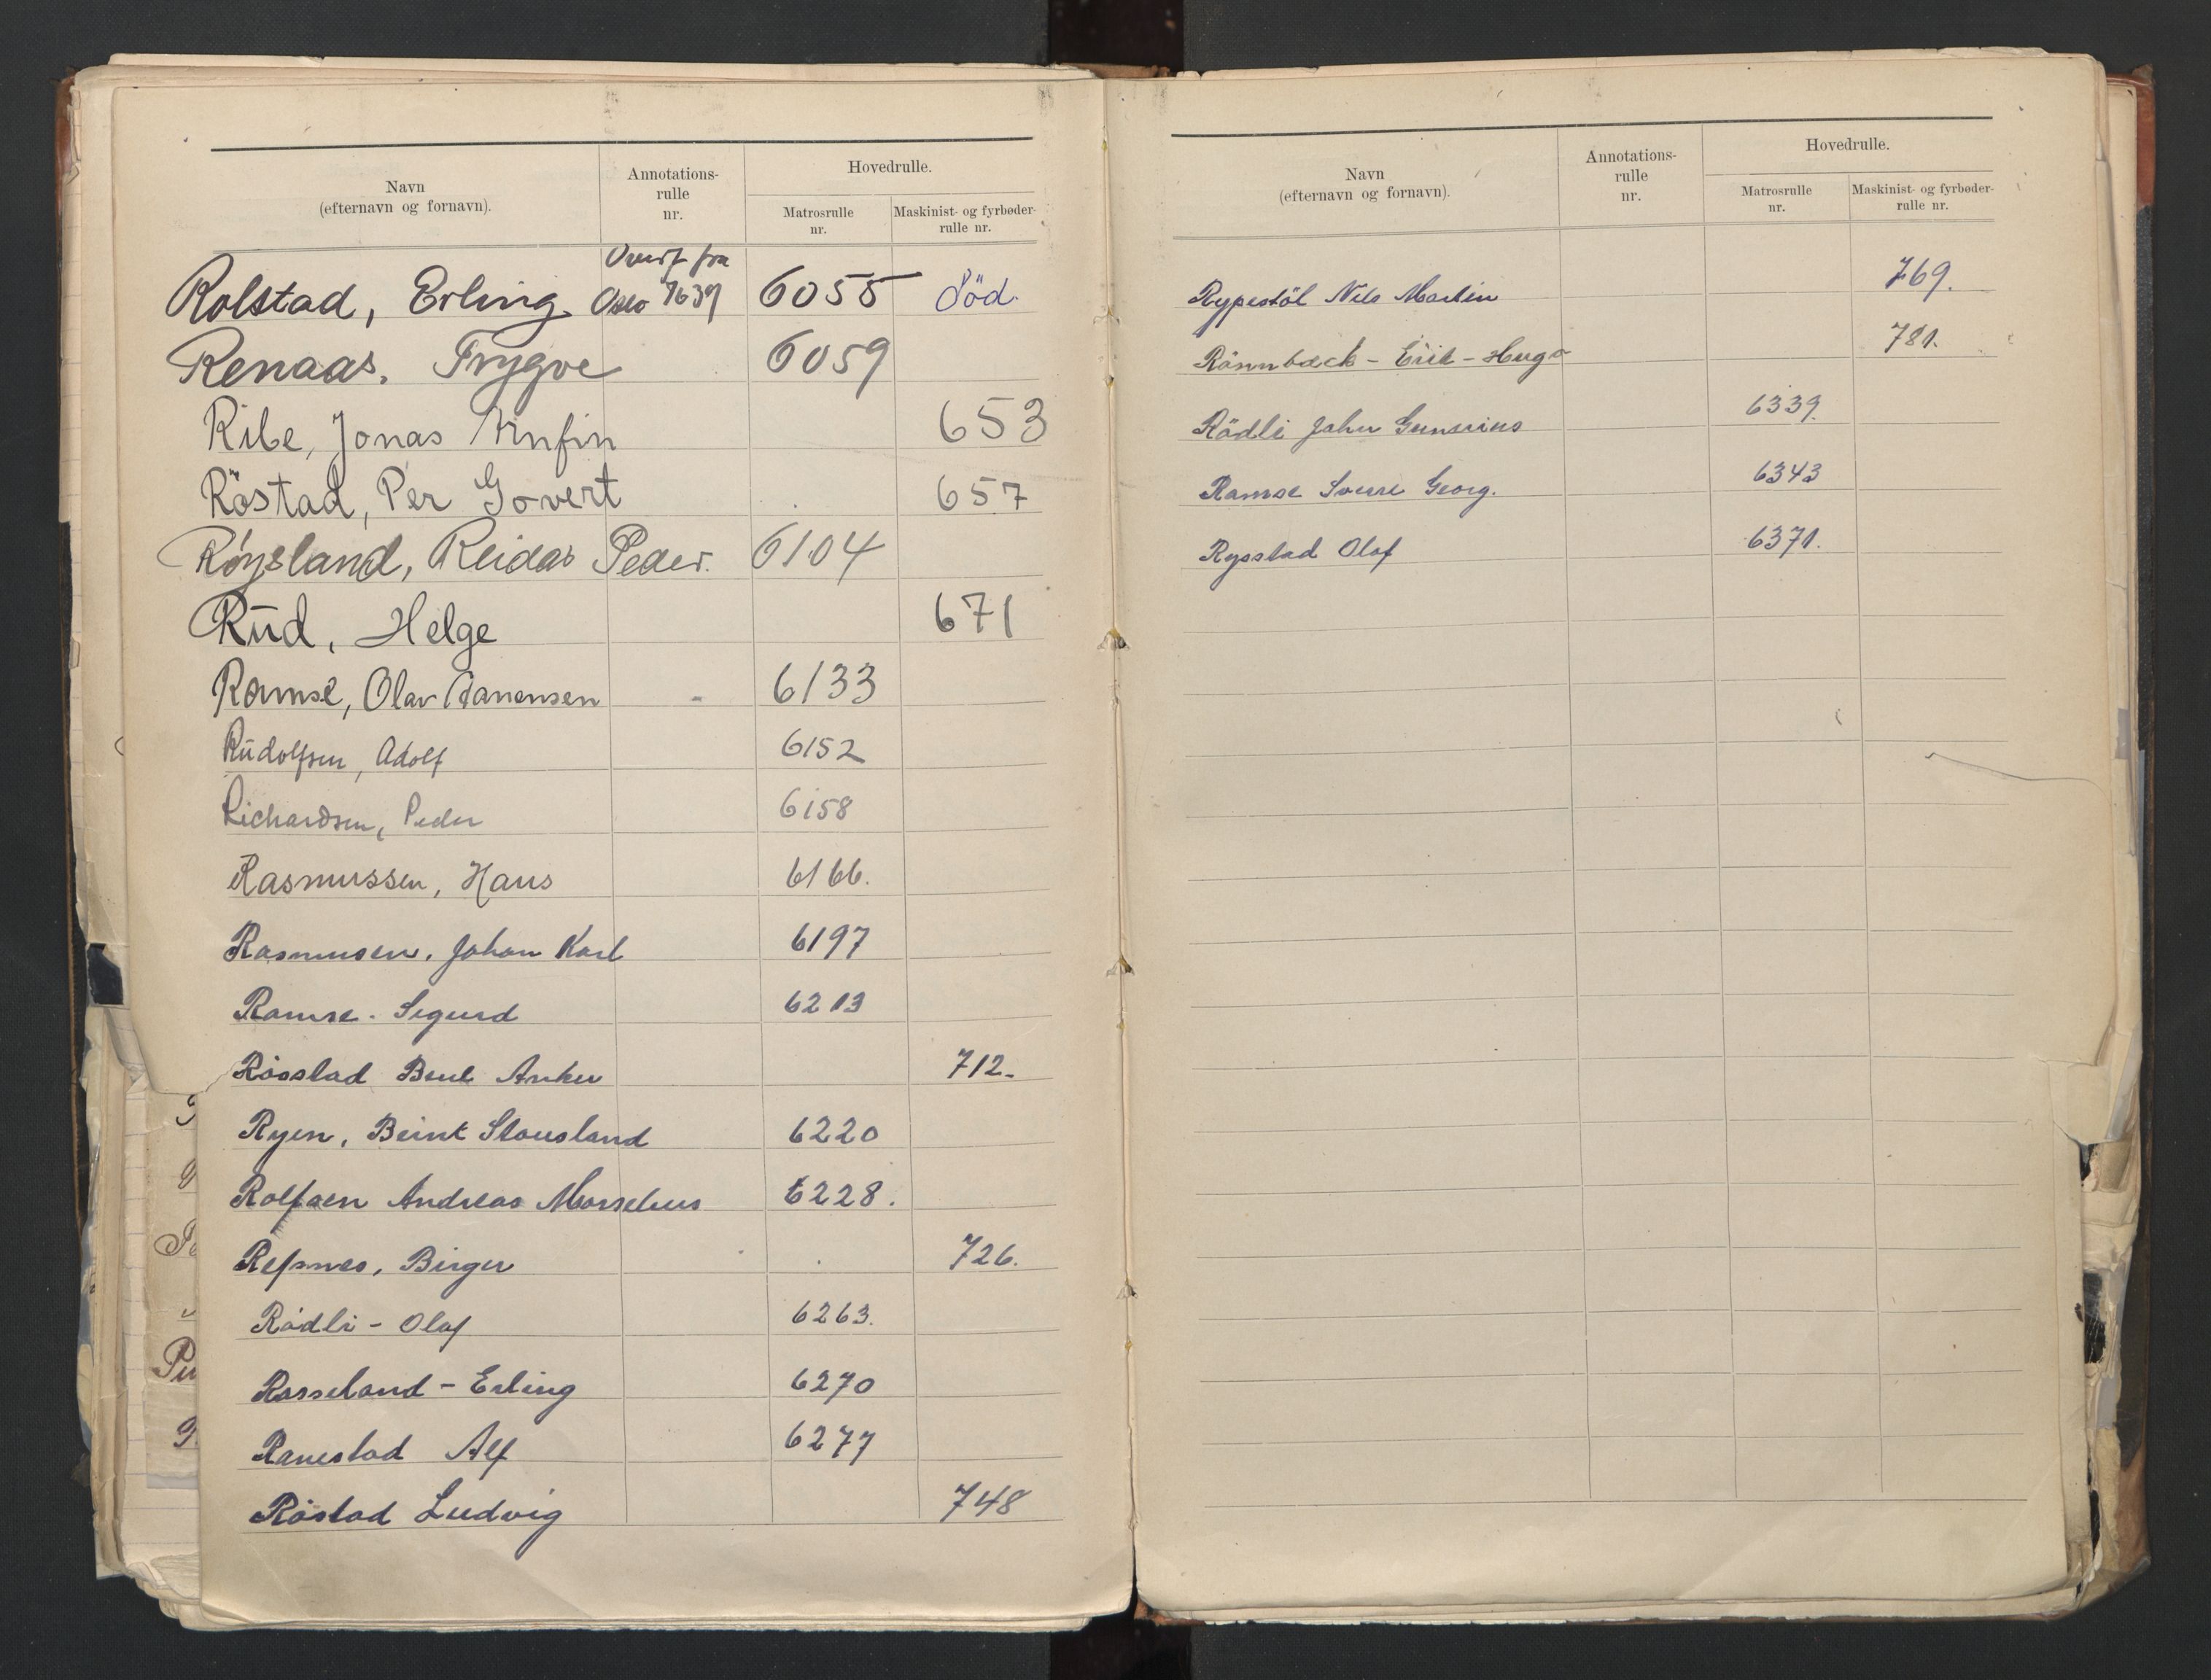 Navn
(efternavn og fornavn).
Annotations-
rulle
nr.
Hovedrulle.
Matrosrulle
nr.
Maskinist- og fyrbøder-
rulle nr.
Overf fra
Rolstad, Erling. Oslo 1639 6055 död.
Renaas, Trygve 6059
Ribe, Jonas Arnfin 653
Röstad, Per Govert 657
Röysland, Reidar Peder. 6104
Rūd, Helge 671
Ramse, Olav Aanensen 6133
Rūdolfsen, Adolf 6152
Richardsen, Peder 6158
Rasmussen, Hans 6166.
Rasmusen, Johan Karl 6197
Ramse. Sigurd 6213
Rösstad Bent Anker 712.
Ryen, Beint Stousland 6220
Rolfsen Andreas Marselius 6228.
Refsnes, Birger 726.
Rödli - Olaf 6263.
Rosseland - Erling 6270
Ranestad Alf 6277
Röstad Ludvig 748
Navn
(efternavn og fornavn).
Annotations-
rulle
nr.
Hovedrulle.
Matrosrulle
nr.
Maskinist- og fyrbøder-
rulle nr.
Rypestöl Nils Martin 769.
Rönnbæck - Erik - Hugo 781.
Rödli John Gunerius 6339.
Ramse Sverre Georg. 6343
Rysstad Olaf 6371.